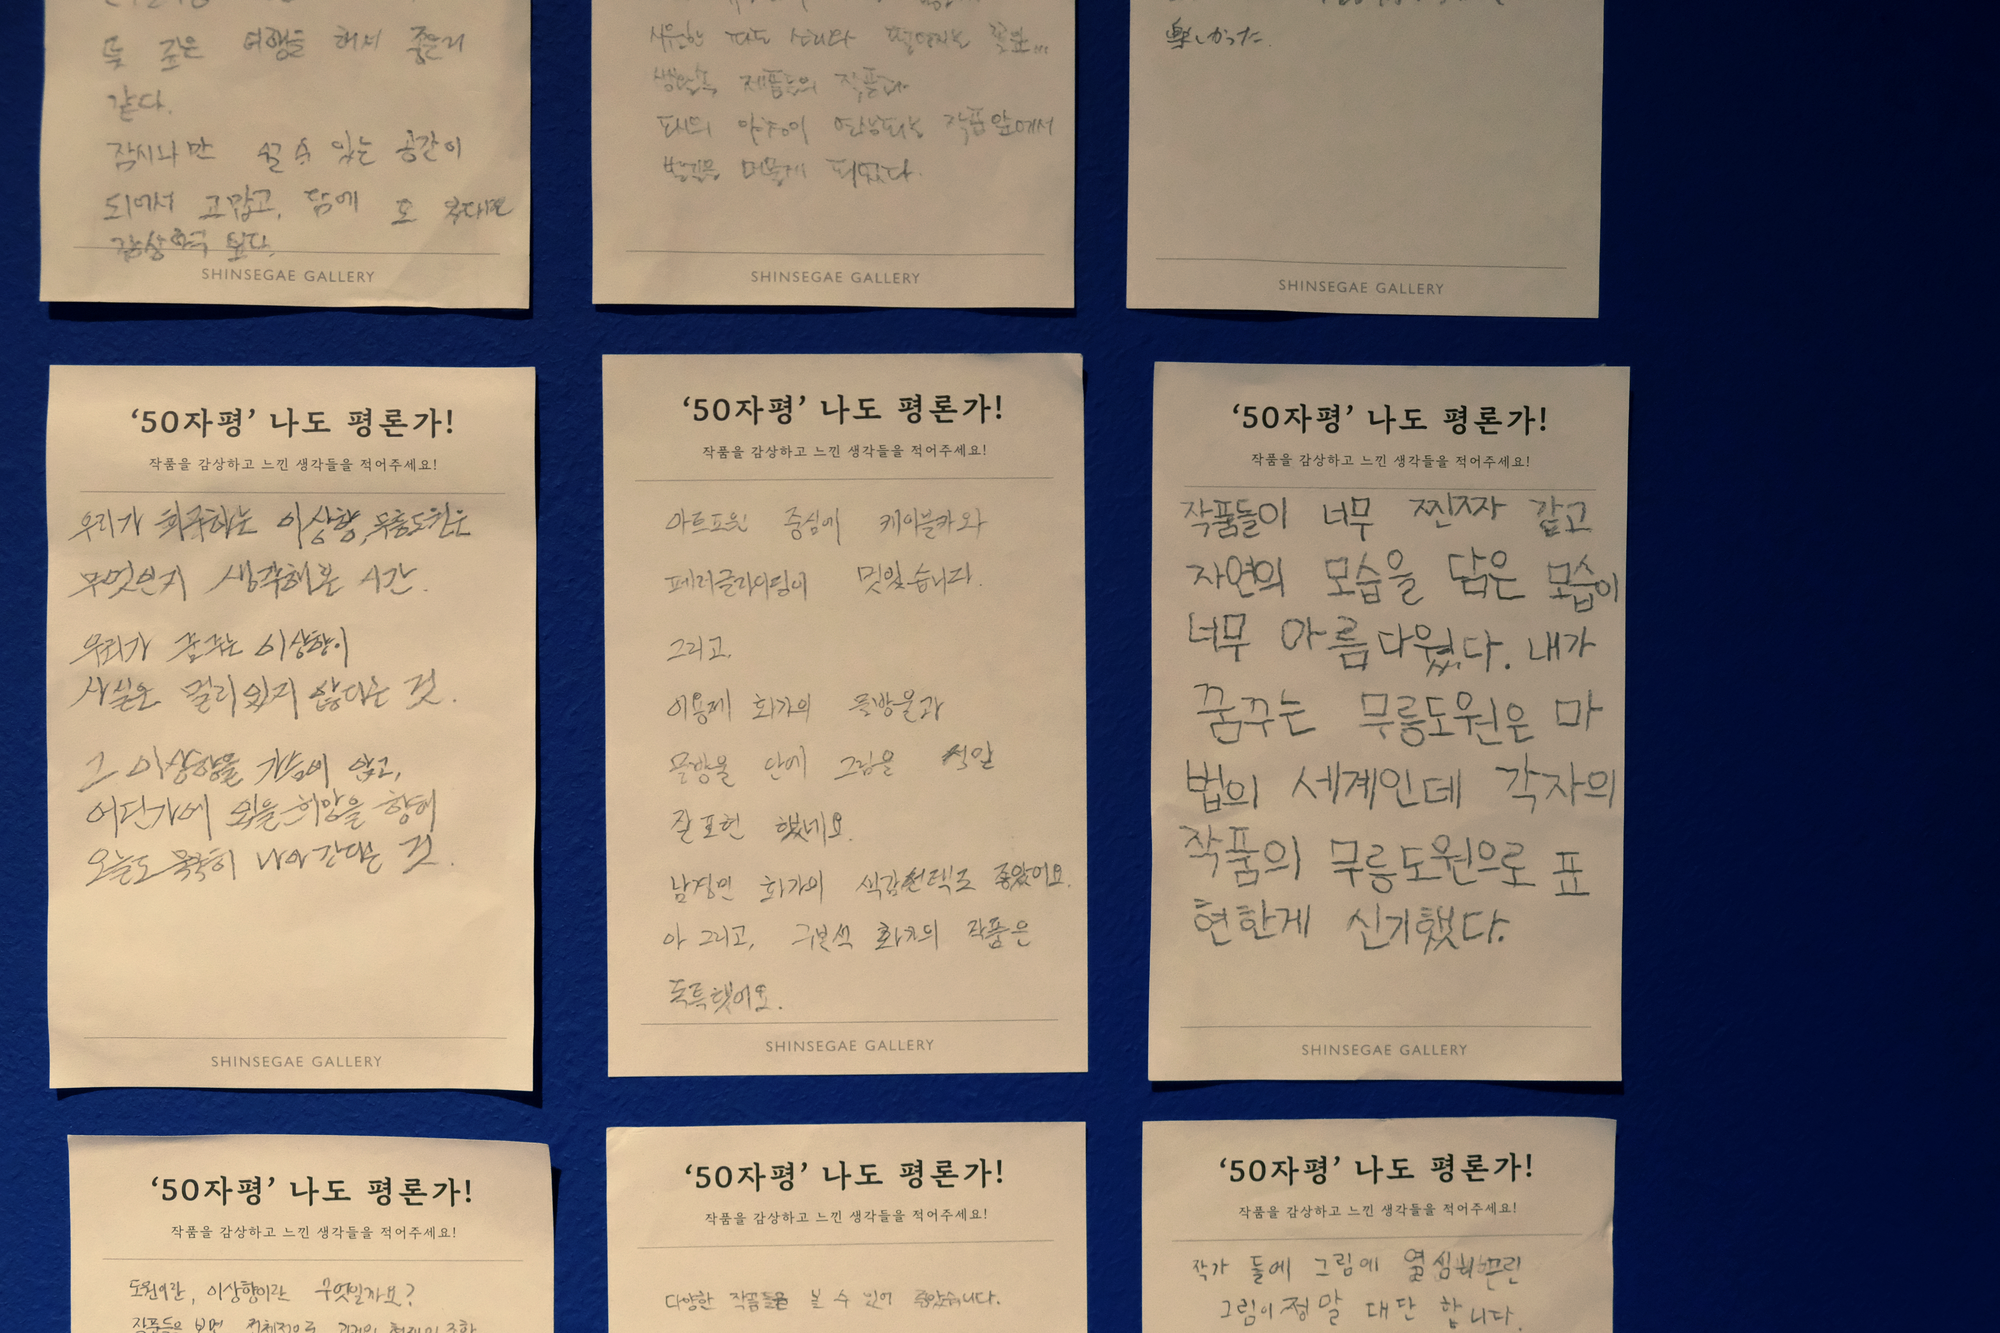 듯 깊은 여행을 해서 좋은거
같다.
잠시나만 쉴 수 있는 공간이
되어서 고맙고, 담에 또
SHINSEGAE GALLERY
시원한 파도 소리와
제품들의 작품과
작품앞에서
발길을 머물게 되었다.
SHINSEGAE GALLERY
楽しかった.
SHINSEGAE GALLERY
‘50자평’ 나도 평론가!
작품을 감상하고 느낀 생각들을 적어주세요!
우리가 희구하는 이상향, 무릉도원은
무엇인지 생각해본 시간.
우리가 꿈꾸는 이상향이
사실은 멀리 있지 않다는 것.
그 이상향을 가슴에 안고,
어딘가에 있을 희망을 향해
오늘도 묵묵히 나아간다는 것.
SHINSEGAE GALLERY
‘50자평’ 나도 평론가!
작품을 감상하고 느낀 생각들을 적어주세요!
아트포원 중심에 케이블카와
페러글라이딩이 멋있습니다.
그리고,
이용제 화가의 물방울과
물방울 안에 그림을 식알
잘 표현 했네요.
남경민 화가의 색감선택도 좋았어요.
아 그리고, 구본석 화가의 작품은
독특했어요.
SHINSEGAE GALLERY
‘50자평’ 나도 평론가!
작품을 감상하고 느낀 생각들을 적어주세요!
작품들이 너무 찐짜 같고
자연의 모습을 담은 모습이
너무 아름다웠다. 내가
꿈꾸는 무릉도원은 마
법의 세계인데 각자의
작품의 무릉도원으로 표
현한게 신기했다.
SHINSEGAE GALLERY
‘50자평’ 나도 평론가!
작품을 감상하고 느낀 생각들을 적어주세요!
도원이란, 이상향이란 무엇일까요?
작품들을 보면 전체적으로
‘50자평’ 나도 평론가!
작품을 감상하고 느낀 생각들을 적어주세요!
다양한 작품들을 볼 수 있어 좋았습니다.
‘50자평’ 나도 평론가!
작품을 감상하고 느낀 생각들을 적어주세요!
작가 들에 그림에 열심히
그림이 정말 대단 합니다.